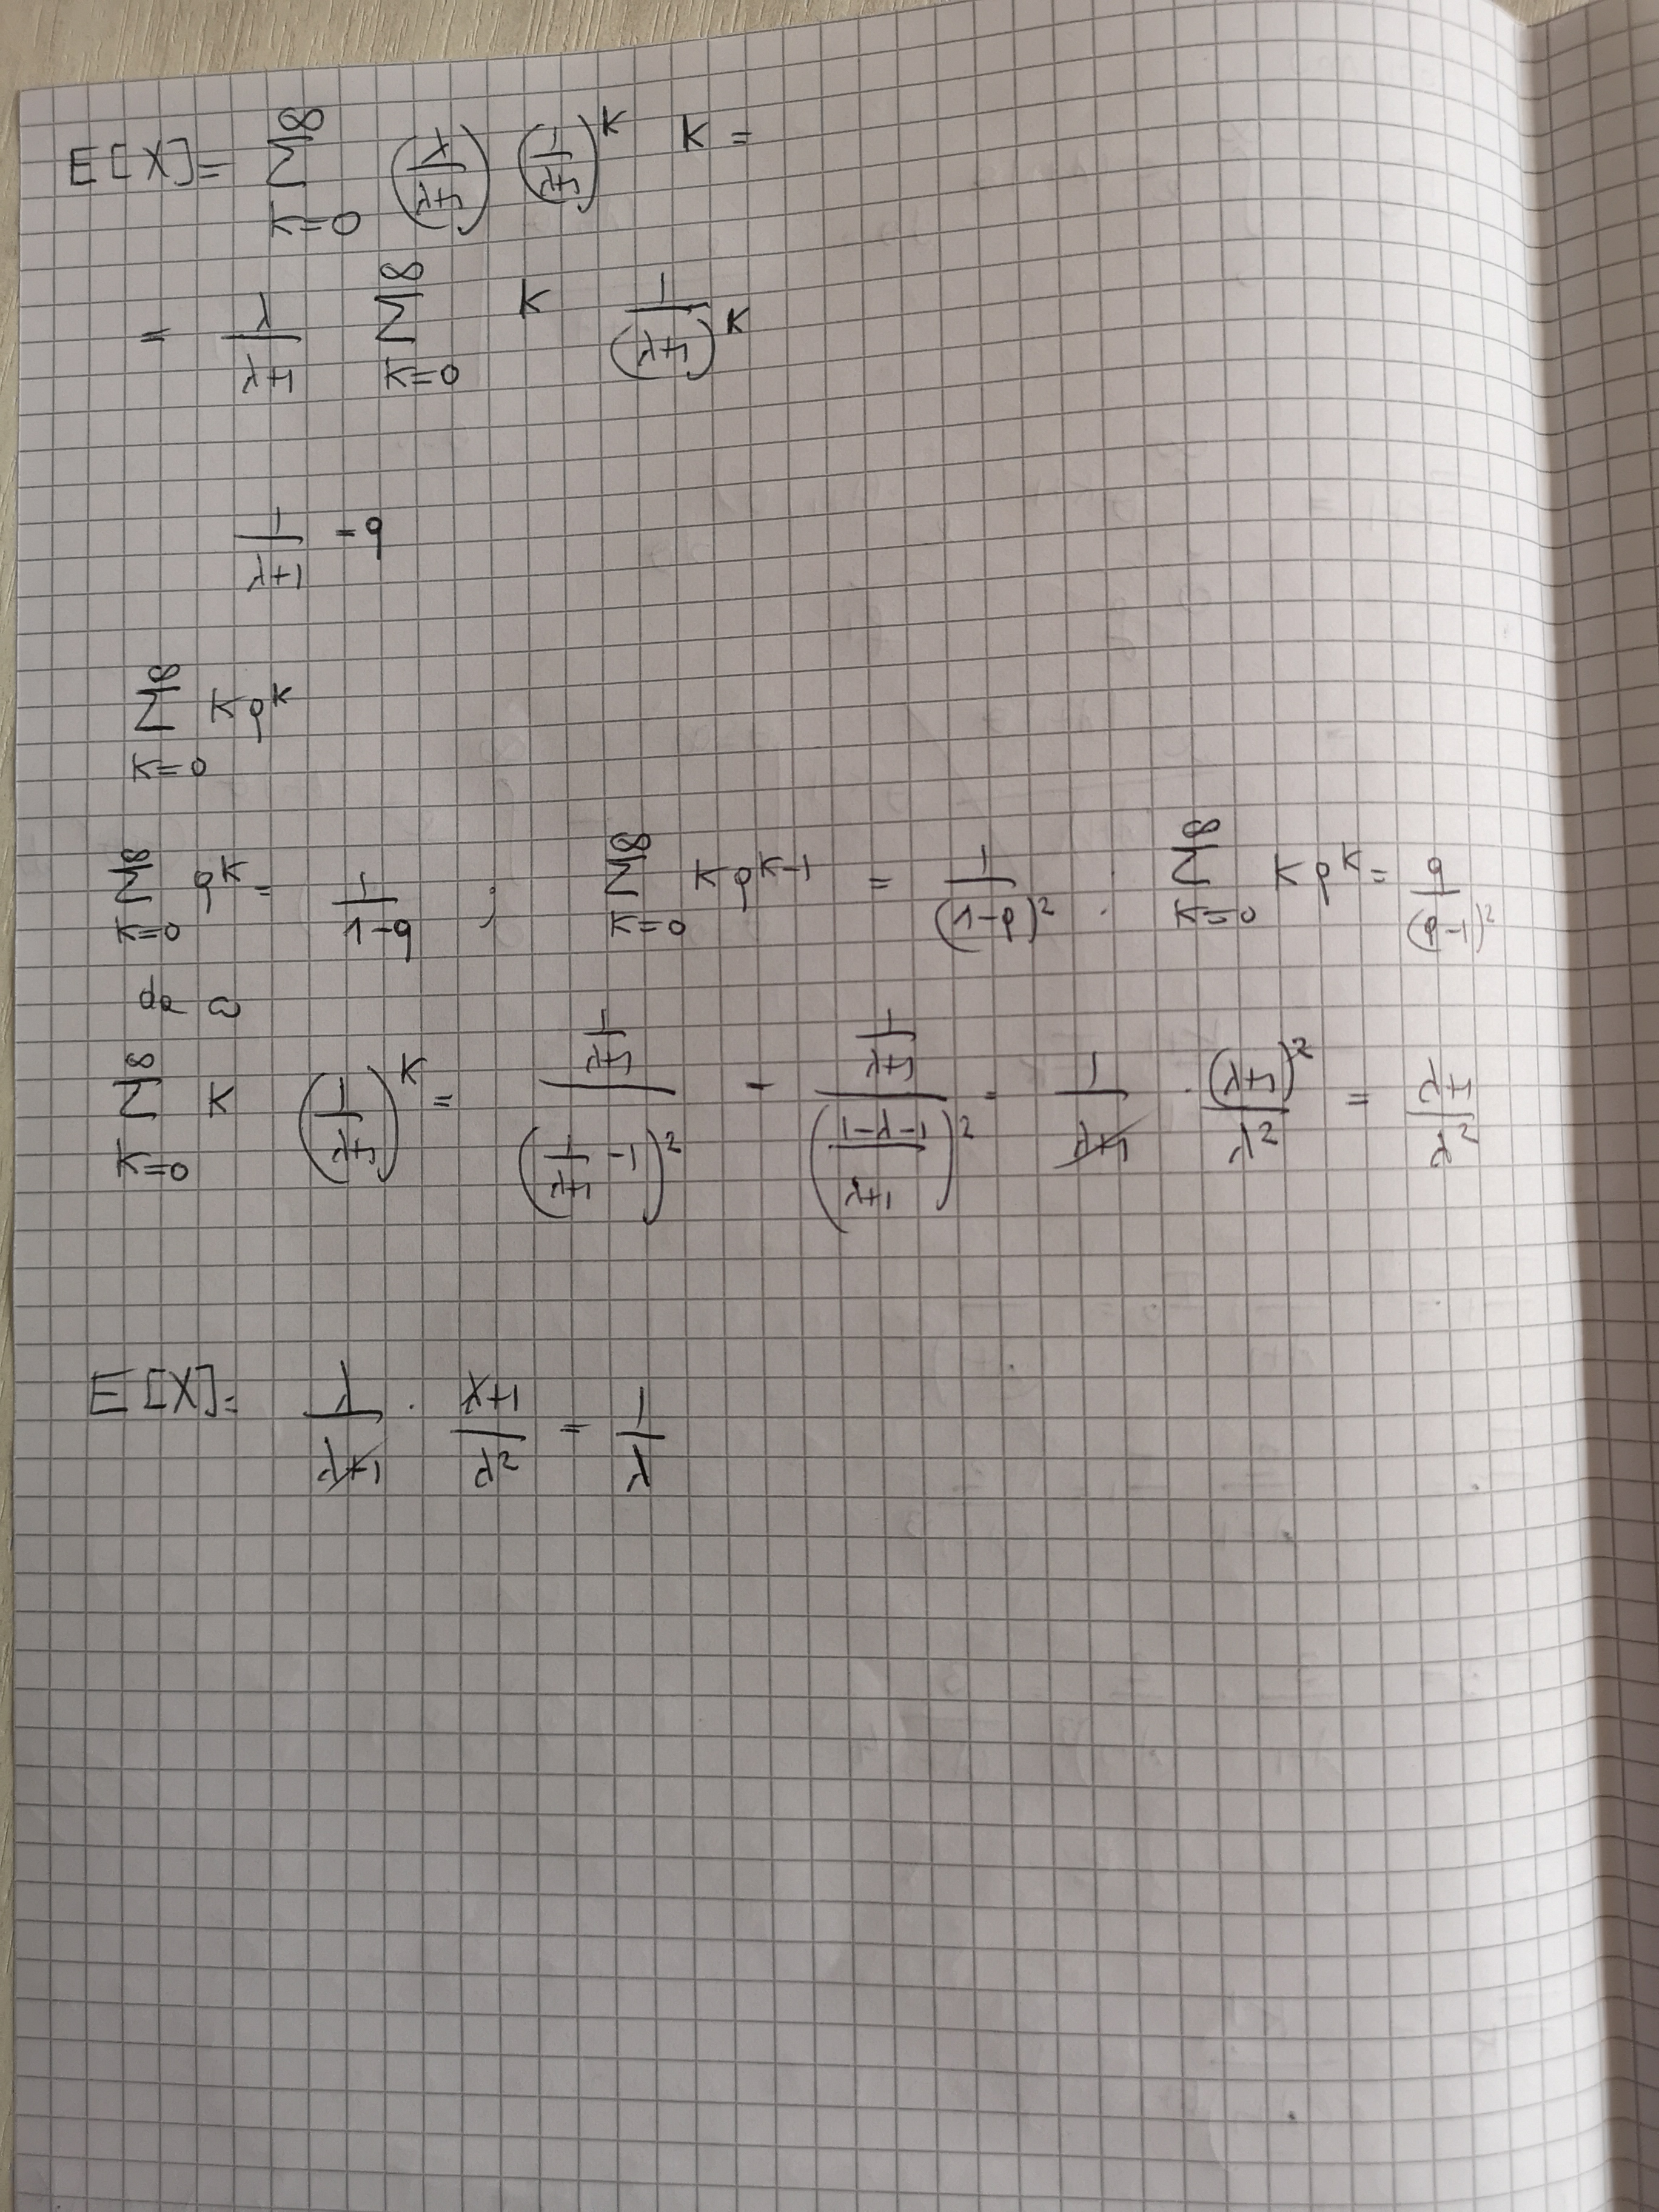 E[X] = ∑_{K=0}^{∞} (λ/(λ+1)) (1/(λ+1))^K K =
= λ/(λ+1) ∑_{K=0}^{∞} K 1/(λ+1)^K
1/(λ+1) = q
∑_{K=0}^{∞} K q^K
∑_{K=0}^{∞} q^K = 1/(1-q) ; ∑_{K=0}^{∞} K q^{K-1} = 1/(1-q)^2 . ∑_{K=0}^{∞} K q^K = q/(q-1)^2
∑_{K=0}^{∞} K (1/(λ+1))^K = (1/(λ+1))/(1/(λ+1) -1)^2 = (1/(λ+1))/((1-λ-1)/(λ+1))^2 = 1/(λ+1) · (λ+1)^2/λ^2 = (λ+1)/λ^2
E[X] = λ/(λ+1) · (λ+1)/λ^2 = 1/λ